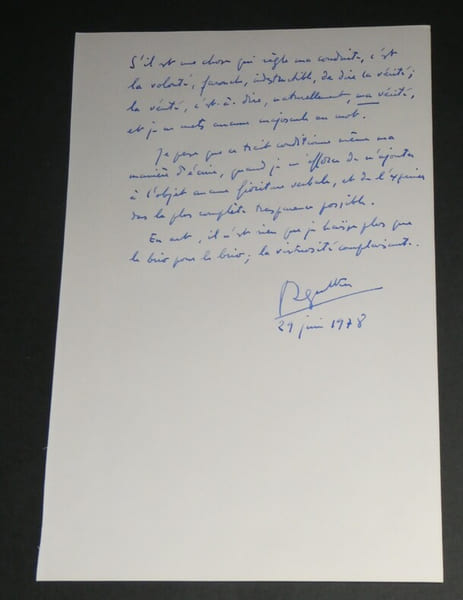 S'il est une chose qui règle ma conduite, c'est
la volonté, farouche, indestructible, de dire la vérité;
la vérité, c'est-à-dire, naturellement, ma vérité,
et je ne mets aucune majuscule au mot.
Je pense que ce trait conditionne même ma
manière d'écrire, quand je m'efforce de n'ajouter
à l'objet aucune fioriture verbale, et de l'exprimer
dans la plus complète transparence possible.
En art, il n'est rien que je haïsse plus que
le brio pour le brio; la virtuosité complaisante.
29 juin 1978